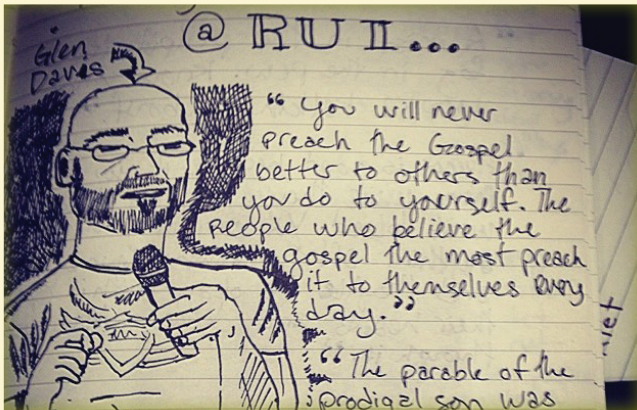 @ RUI...
Glen
Davis
“ You will never
preach the Gospel
better to others than
you do to yourself. The
people who believe the
gospel the most preach
it to themselves every
day.”
“ The parable of the
prodigal son was